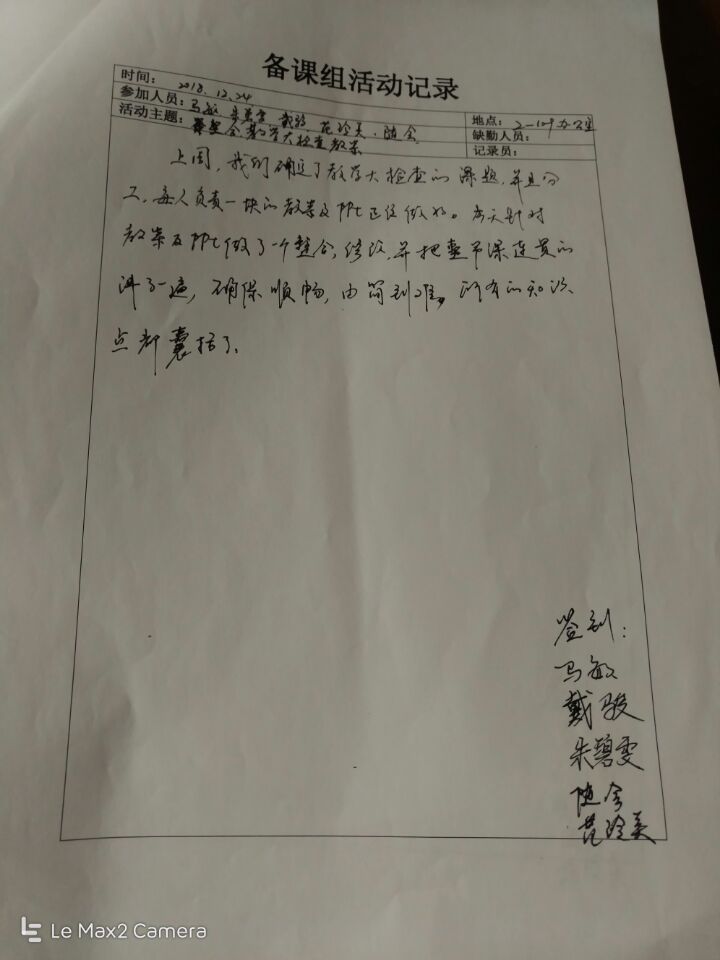 备课组活动记录
时间: 2018.12.24
地点: 2-109办公室
参加人员: 马敏 朱碧雯 戴骏 范玲美 随金
缺勤人员:
活动主题: 整合教学大检查教案
记录员:
上周,我们确定了教学大检查的课题,并且分
工,每人负责一块的教案及PPT已经做好。今天针对
教案及PPT做了一个整合,修改,并把整节课连贯的
讲了一遍,确保顺畅,由简到难,所有的知识
点都囊括了。
签到:
马敏
戴骏
朱碧雯
随金
范玲美
Le Max2 Camera